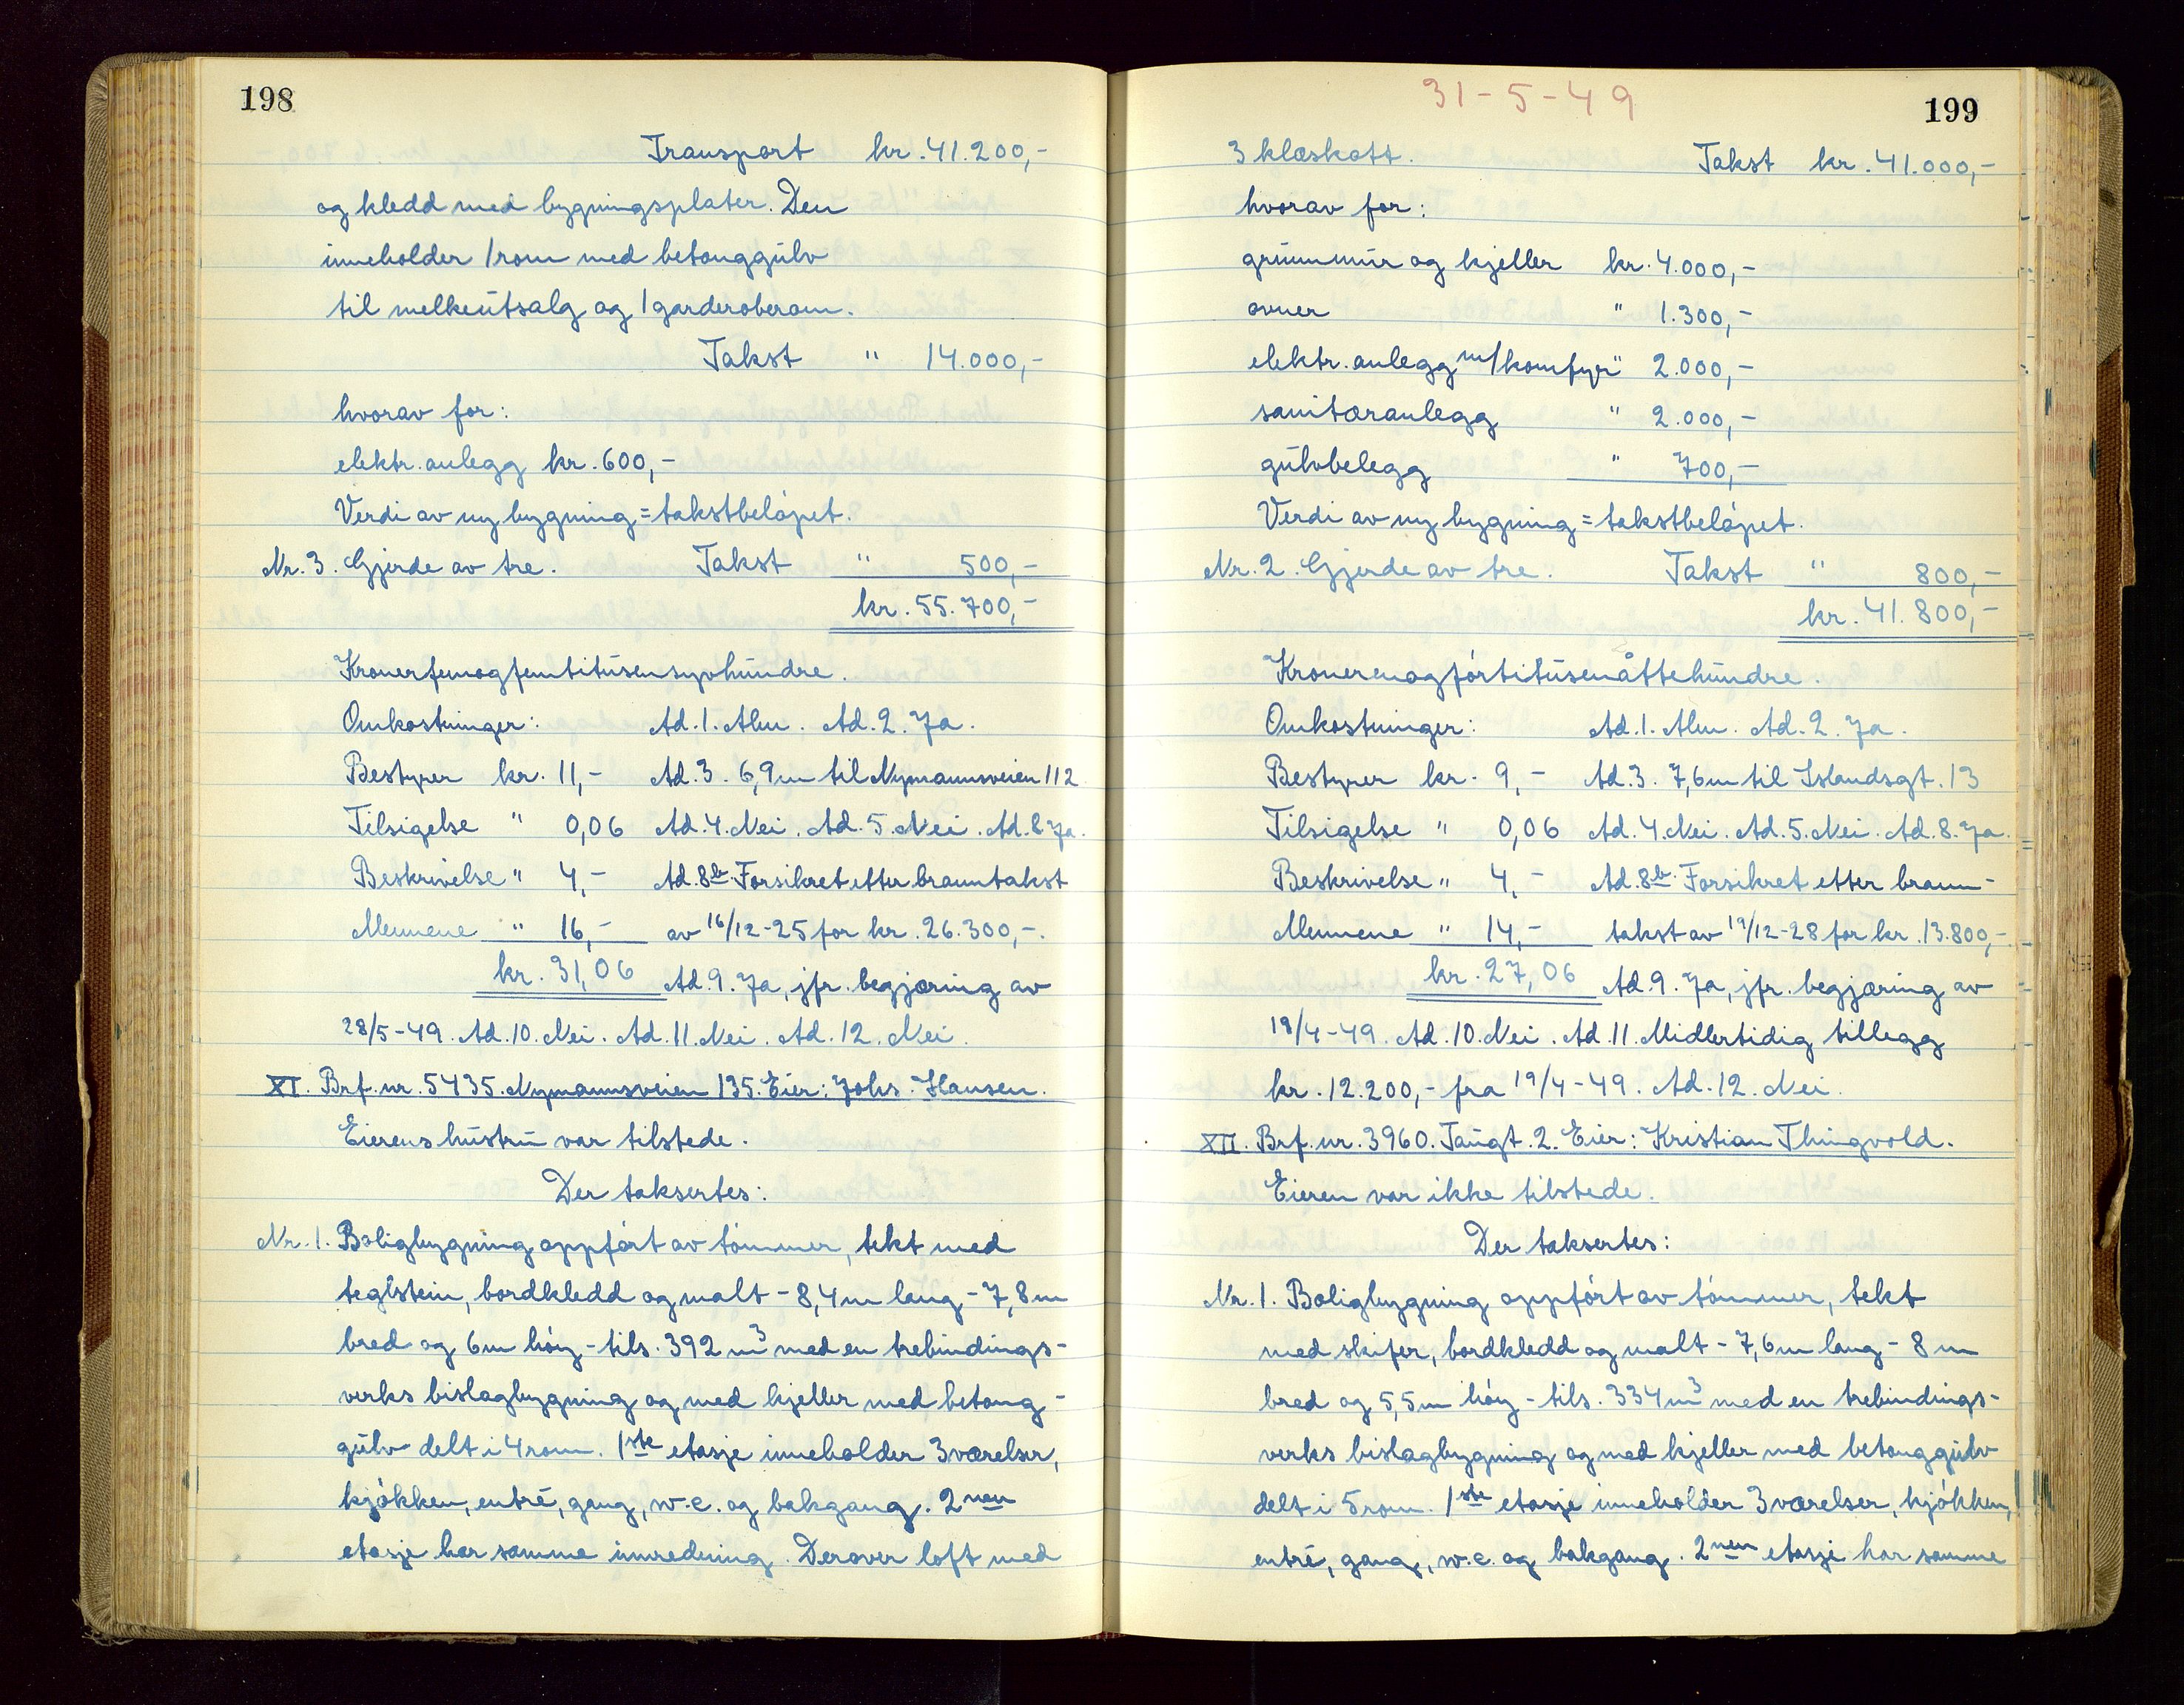 198
Transport kr. 41.200,-
og kledd med bygningsplater. Den
inneholder 1 rom med betonggulv
til melkeutsalg og 1 garderoberom.
Takst " 14.000,-
hvorav for:
elektr. anlegg kr. 600,-
Verdi av ny bygning = takstbeløpet.
Nr. 3. Gjerde av tre. Takst " 500,-
kr. 55.700,-
Kronerfemogfemtitusensyvhundre.
Omkostninger: Ad. 1. Alm. Ad. 2. Ja.
Bestyrer kr. 11,- Ad. 3. 6,9 m til Nymannsveien 112
Tilsigelse " 0,06 Ad. 4. Nei. Ad. 5. Nei. Ad. 8. Ja.
Beskrivelse " 4,- Ad. 8b. Forsikret etter branntakst
Mennene " 16,- av 16/12-25 for kr. 26.300,-.
kr. 31,06 Ad. 9. Ja, jfr. begjæring av
28/5-49. Ad. 10. Nei. Ad. 11. Nei. Ad. 12. Nei.
XI. Brf. nr. 5435. Nymannsveien 135. Eier: Johs. Hansen.
Eierens hustru var tilstede.
Der taksertes:
Nr. 1. Boligbygning oppført av tømmer, tekt med
teglstein, bordkledd og malt - 8,4 m lang - 7,8 m
bred og 6 m høy - tils. 392 m3 med en trebindings-
verks bislagbygning og med kjeller med betong-
gulv delt i 4 rom. 1ste etasje inneholder 3 værelser,
kjøkken, entré, gang, w.c. og bakgang. 2nen
etasje har samme innredning. Derover loft med
31-5-49
199
3 klæskott. Takst kr. 41.000,-
hvorav for:
grunnmur og kjeller kr. 4.000,-
ovner " 1.300,-
elektr. anlegg m/komfyr " 2.000,-
sanitæranlegg " 2.000,-
gulvbelegg " 700,-
Verdi av ny bygning = takstbeløpet.
Nr. 2. Gjerde av tre. Takst " 800,-
kr. 41.800,-
Kronerenogførtitusenåttehundre.
Omkostninger: Ad. 1. Alm. Ad. 2. Ja.
Bestyrer kr. 9,- Ad. 3. 7,6 m til Islandsgt. 13
Tilsigelse " 0,06 Ad. 4. Nei. Ad. 5. Nei. Ad. 8. Ja.
Beskrivelse " 4,- Ad. 8b. Forsikret etter brann-
Mennene " 14,- takst av 19/12-28 for kr. 13.800,-.
kr. 27,06 Ad. 9. Ja, jfr. begjæring av
19/4-49. Ad. 10. Nei. Ad. 11. Midlertidig tillegg
kr. 12.200,- fra 19/4-49. Ad. 12. Nei.
XII. Brf. nr. 3960. Taugt. 2. Eier: Kristian Thingvold.
Eieren var ikke tilstede.
Der taksertes:
Nr. 1. Boligbygning oppført av tømmer, tekt
med skifer, bordkledd og malt - 7,6 m lang - 8 m
bred og 5,5 m høy - tils. 334 m3 med en trebindings-
verks bislagbygning og med kjeller med betonggulv
delt i 5 rom. 1ste etasje inneholder 3 værelser, kjøkken,
entré, gang, w.c. og bakgang. 2nen etasje har samme